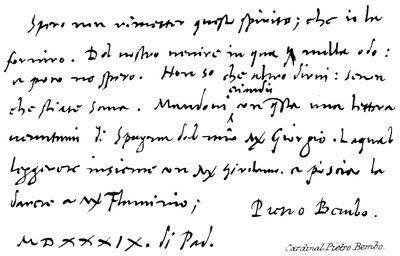 Spero non rimetter questo spirito; che io la
fornirò. Del vostro venire in qua nulla odo:
e poco ne spero. Non so che altro dirvi: senon
che stiate sana. Mandovi etiandio con questa una lettera
venutami di Spagna dal mio M. Giorgio. La qual
leggerete insieme con M. Girolamo. e poscia la
darete a M. Flaminio;
Pietro Bembo.
MDXXXIX. di Pad.
Cardinal Pietro Bembo.